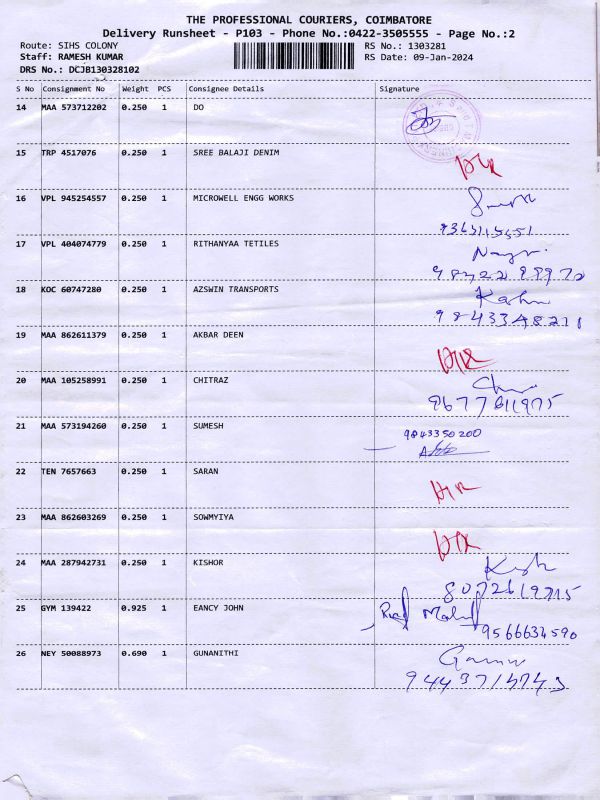 THE PROFESSIONAL COURIERS, COIMBATORE
Delivery Runsheet - P103 - Phone No.:0422-3505555 - Page No.:2
Route: SIHS COLONY RS No.: 1303281
Staff: RAMESH KUMAR RS Date: 09-Jan-2024
DRS No.: DCJB130328102
S No Consignment No Weight PCS Consignee Details Signature
14 MAA 573712202 0.250 1 DO
15 TRP 4517076 0.250 1 SREE BALAJI DENIM
16 VPL 945254557 0.250 1 MICROWELL ENGG WORKS
17 VPL 404074779 0.250 1 RITHANYAA TETILES
18 KOC 60747280 0.250 1 AZSWIN TRANSPORTS
9843348211
19 MAA 862611379 0.250 1 AKBAR DEEN
20 MAA 105258991 0.250 1 CHITRAZ
21 MAA 573194260 0.250 1 SUMESH 9843350200
22 TEN 7657663 0.250 1 SARAN
23 MAA 862603269 0.250 1 SOWMYIYA
24 MAA 287942731 0.250 1 KISHOR
25 GYM 139422 0.925 1 EANCY JOHN
9566634590
26 NEY 50088973 0.690 1 GUNANITHI